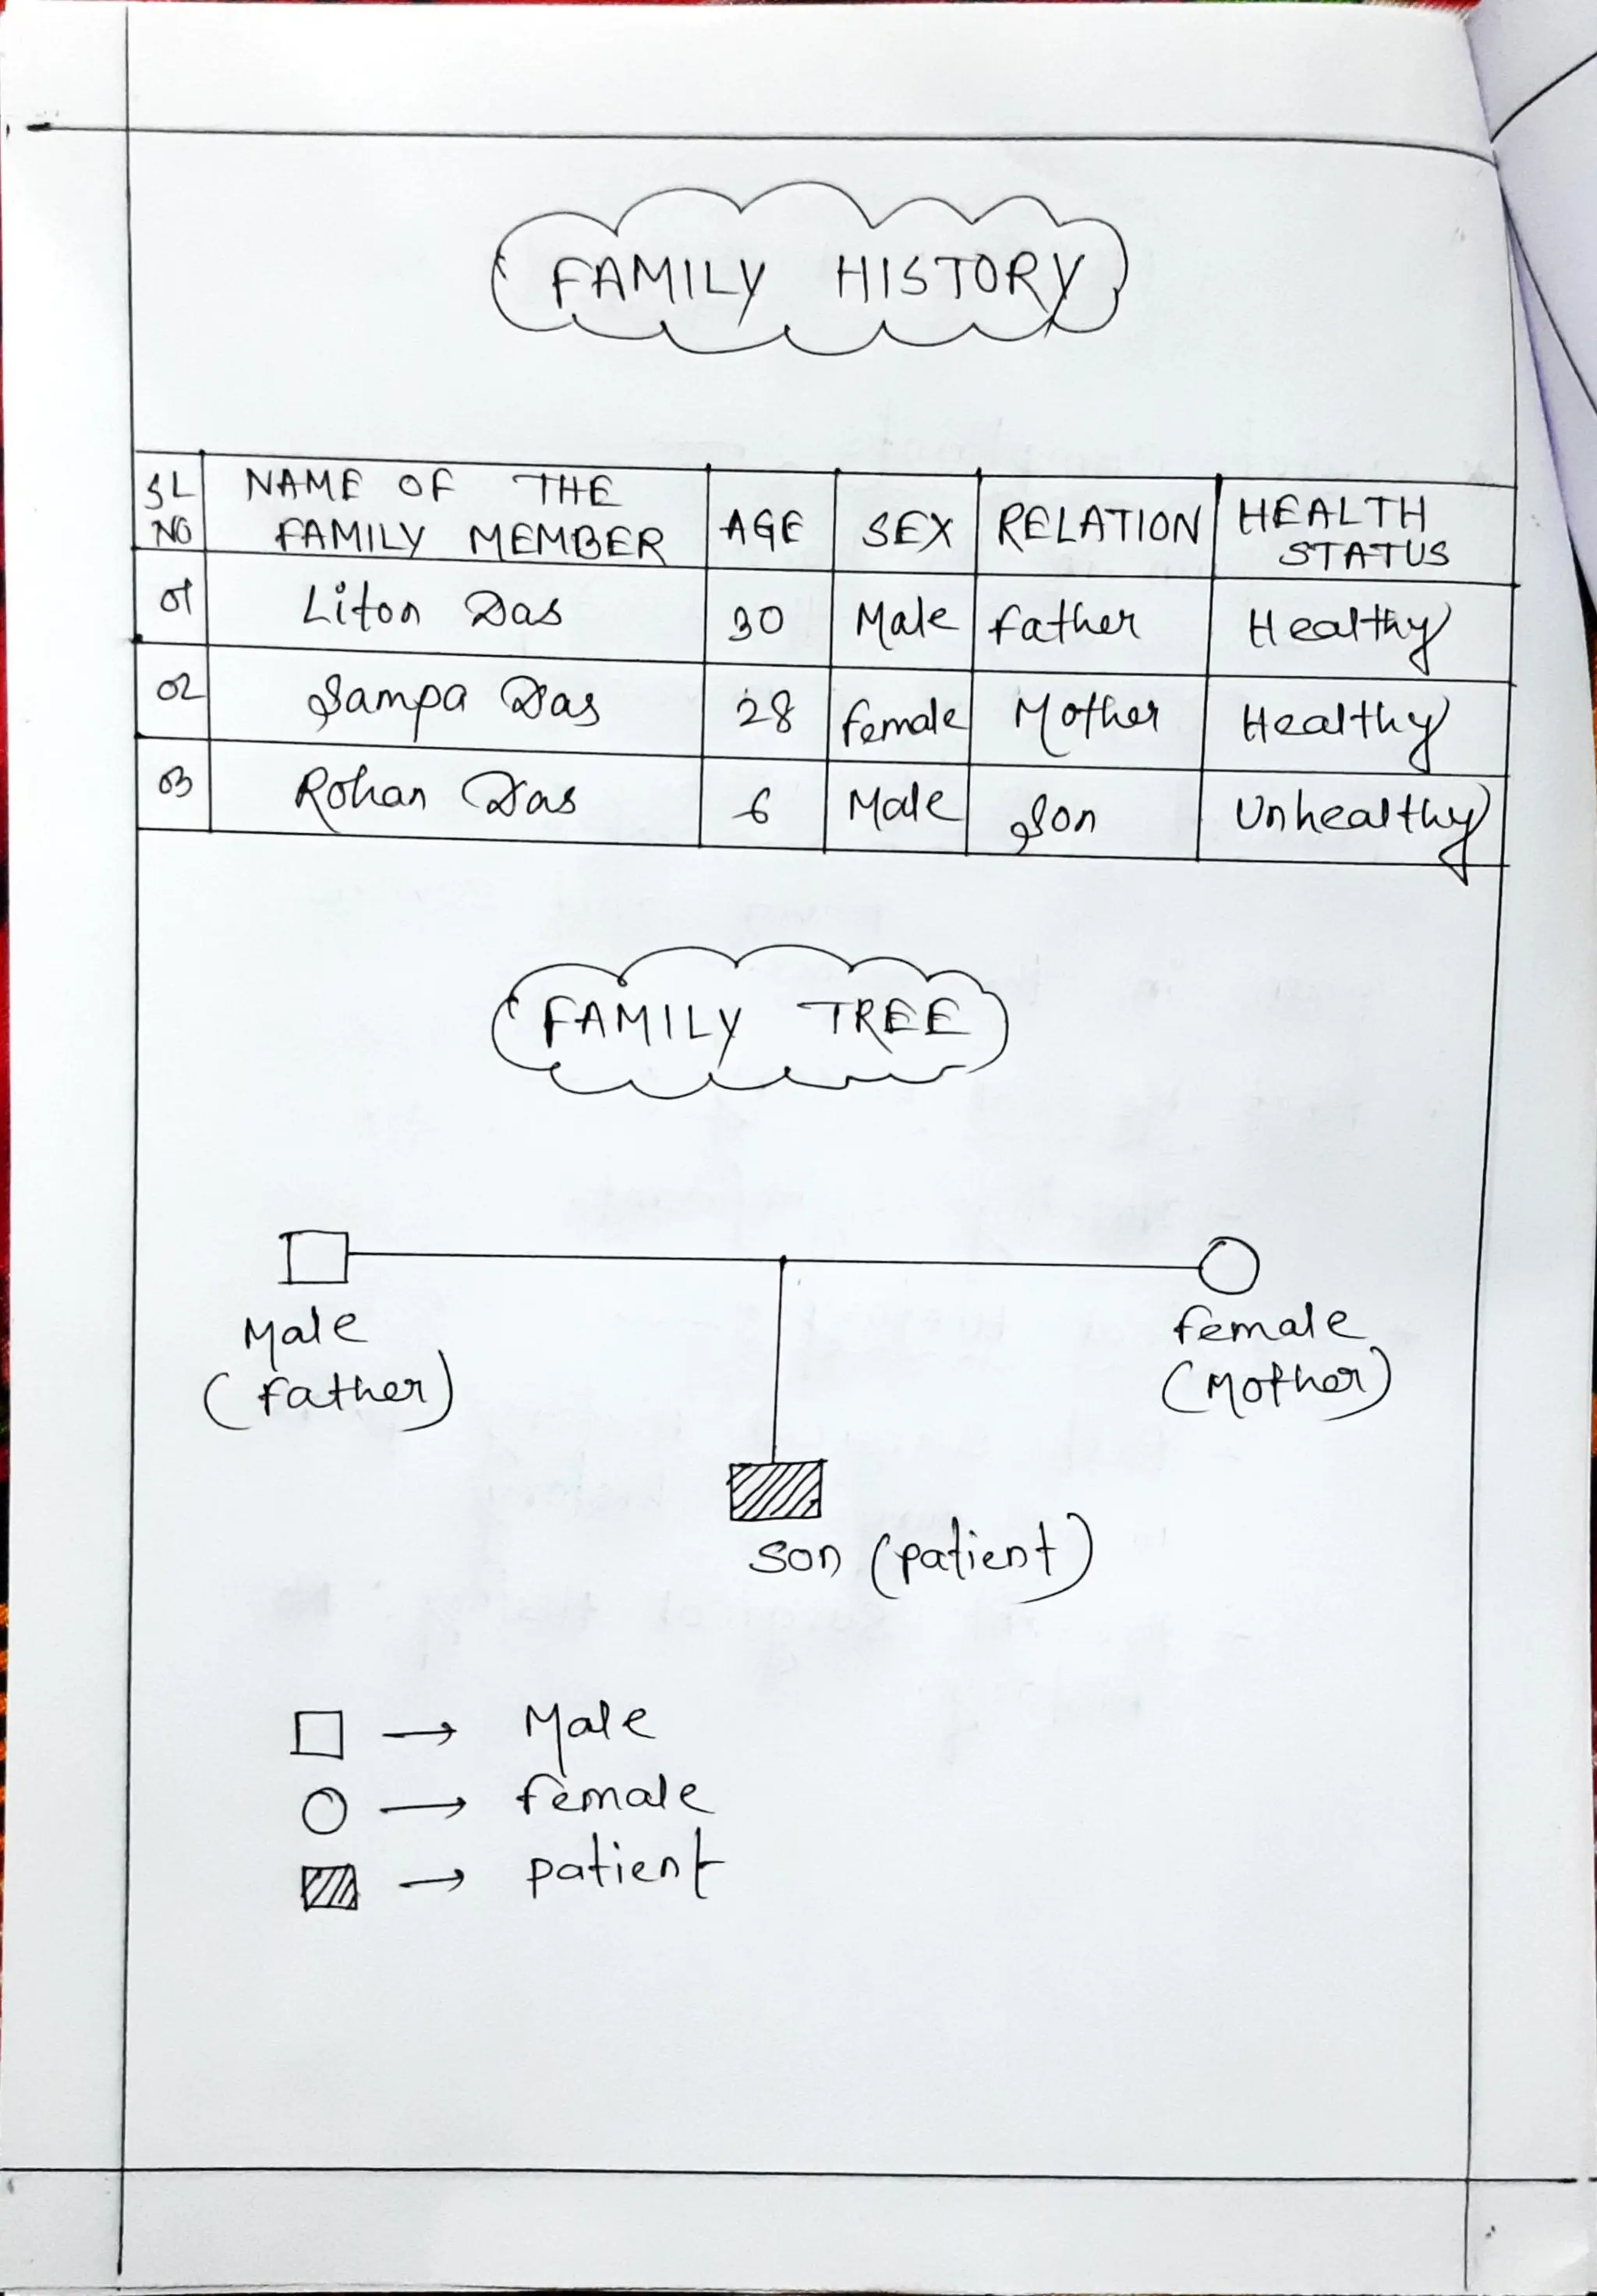 FAMILY HISTORY
SL NO NAME OF THE FAMILY MEMBER AGE SEX RELATION HEALTH STATUS
01 Liton Das 30 Male Father Healthy
02 Sampa Das 28 Female Mother Healthy
03 Rohan Das 6 Male Son Unhealthy
FAMILY TREE
Male
(Father)
Female
(Mother)
Son (patient)
Male
Female
patient